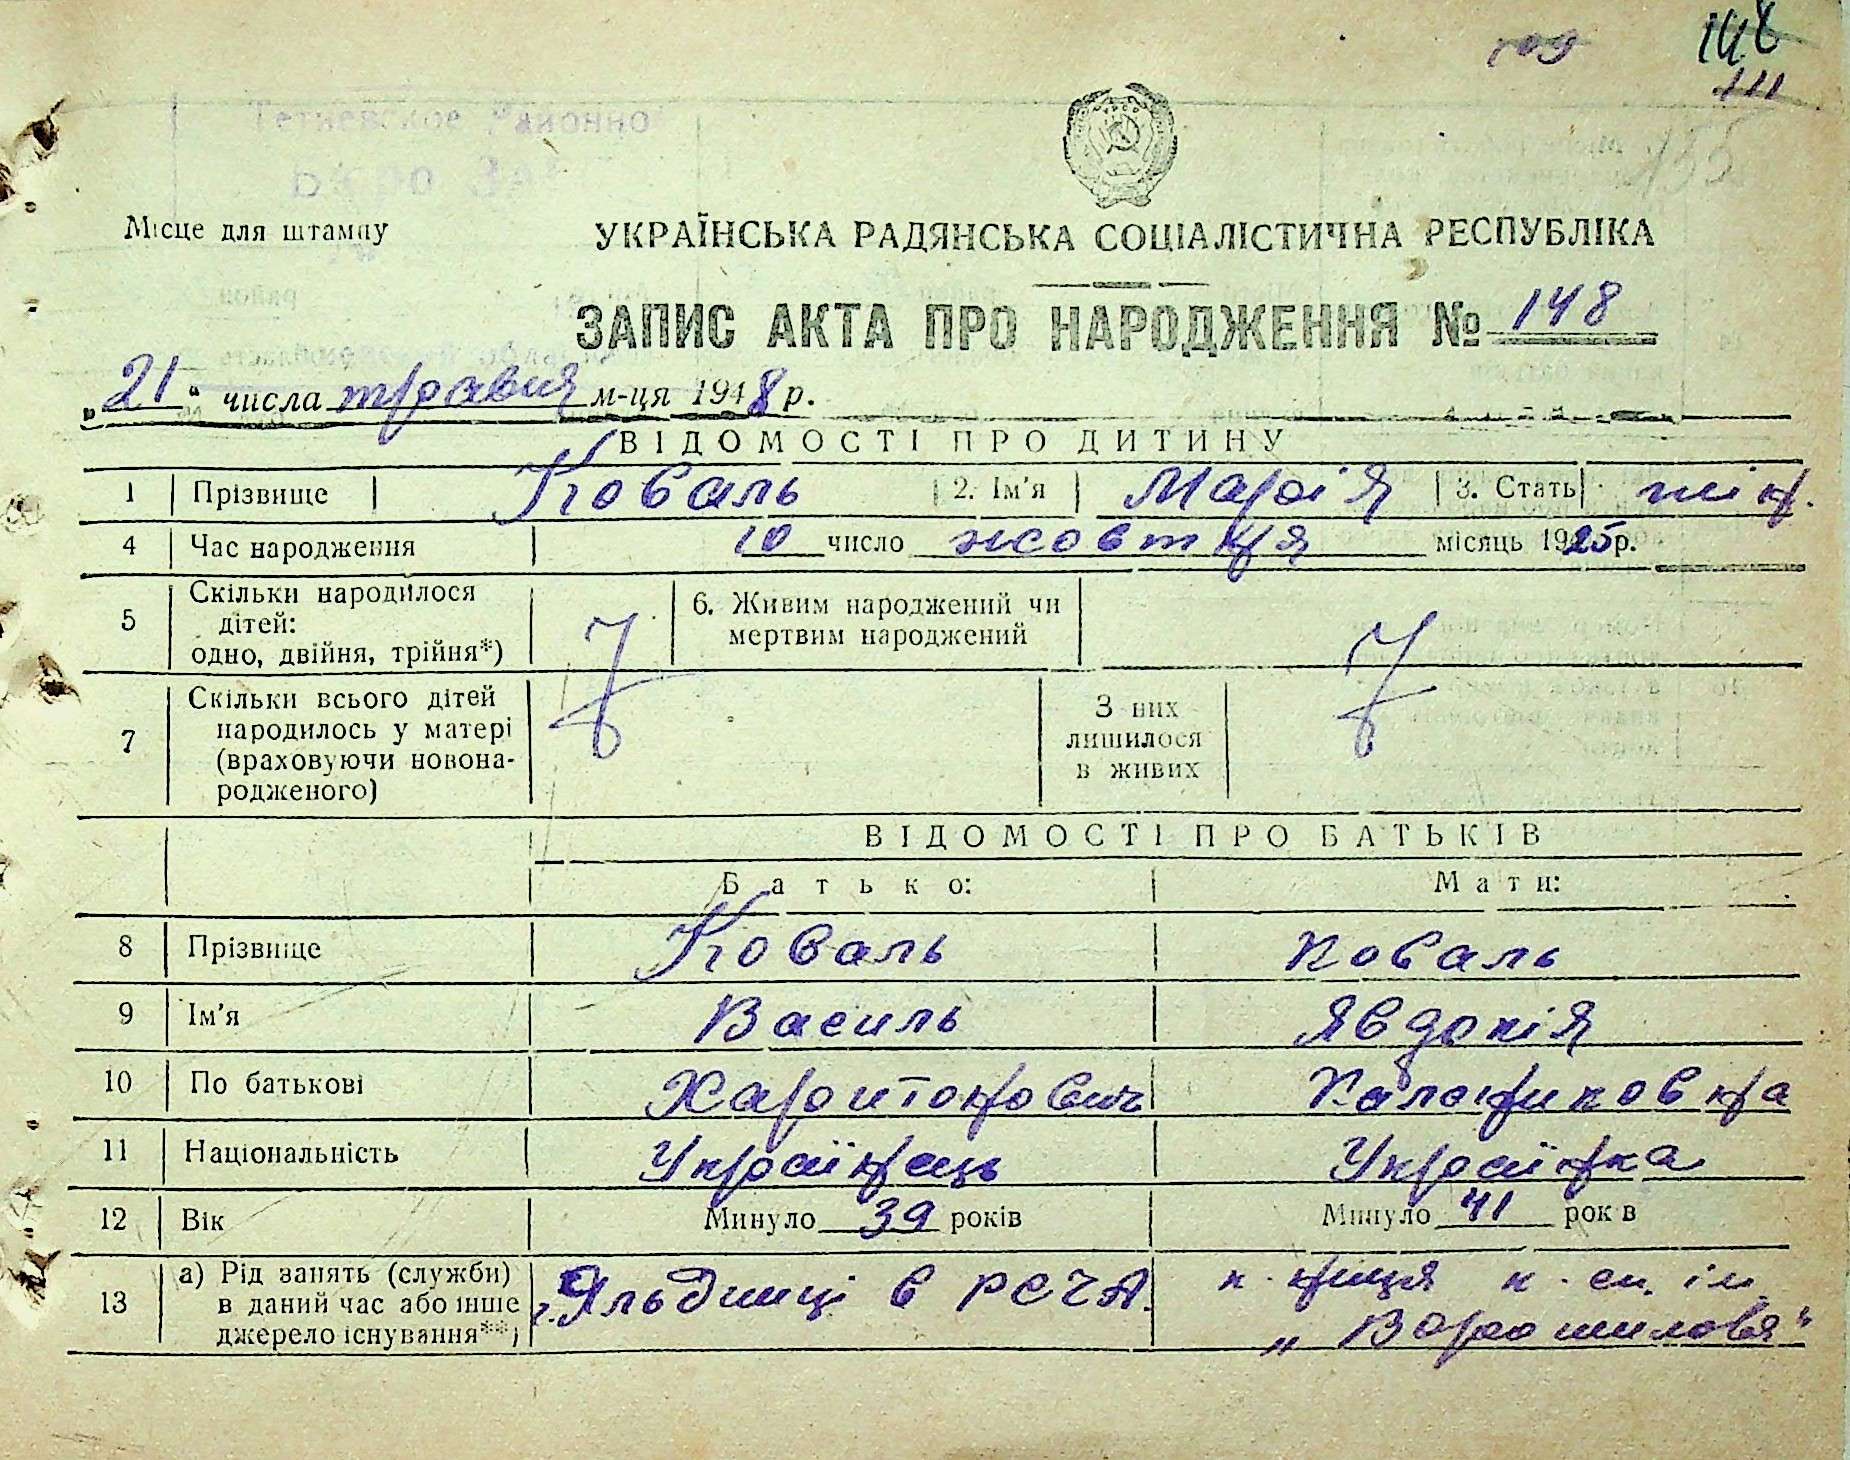 109
148
111
155
Тетиевское Районно
Бюро
Місце для штампу
УКРАЇНСЬКА РАДЯНСЬКА СОЦІАЛІСТИЧНА РЕСПУБЛІКА
ЗАПИС АКТА ПРО НАРОДЖЕННЯ № 148
„21“ числа травня м-ця 1948 р.
ВІДОМОСТІ ПРО ДИТИНУ
1 Прізвище Коваль 2. Ім'я Марія 3. Стать жін.
4 Час народження 10 число жовтня місяць 1925 р.
5 Скільки народилося дітей: одно, двійня, трійня*) 6. Живим народжений чи мертвим народжений
7 Скільки всього дітей народилось у матері (враховуючи новонародженого) З них лишилося в живих
ВІДОМОСТІ ПРО БАТЬКІВ
Батько: Мати:
8 Прізвище Коваль Коваль
9 Ім'я Василь Явдокія
10 По батькові Харитонович Калениковна
11 Національність Українець Українка
12 Вік Минуло 39 років Минуло 41 рок в
13 а) Рід занять (служби) в даний час або інше джерело існування**) в РСЧА. к-ниця к-сп. ім.
„Ворошилова“